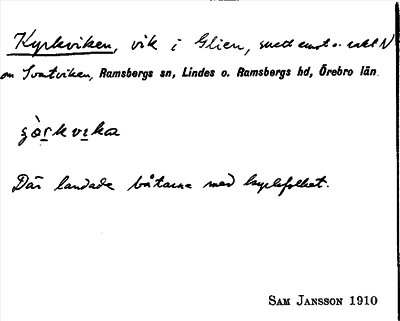 Kyrkviken, vik i Glien, snett emot o. rakt N
om Svartviken, Ramsbergs sn, Lindes o. Ramsbergs hd, Örebro län.
Där landade båtarna med kyrkfolket.
SAM JANSSON 1910